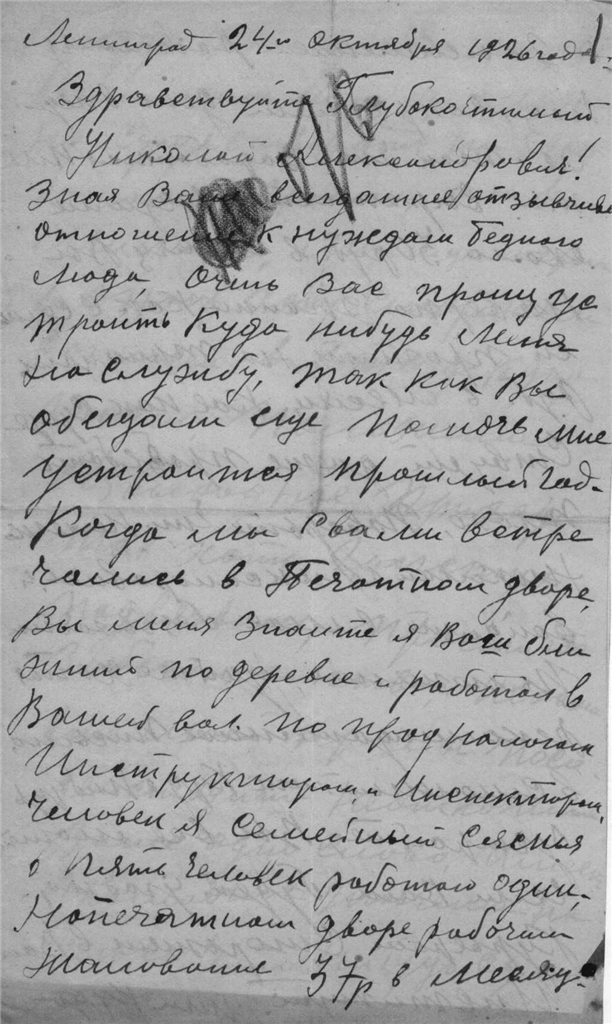 Ленинград 24-го октября 1926 года 1
Здравствуйте Глубокочтимый
Николай Александрович!
Зная Ваше всегдашнее отзывчивое
отношение к нуждам бедного
люда, очень Вас прошу ус
троить куда нибудь меня
на службу, так как Вы
обещали еще помочь мне
устроится прошлый год.
Когда мы с Вами встре
чались в Печатном дворе,
Вы меня знаите я Ваш бли
жний по деревне и работал в
Вашей вол. по продналогам
Инструктором, и Инспектором,
Человек я семейный
пять человек работаю один,
на печатном дворе рабочим
жалованье 37р в месяц.